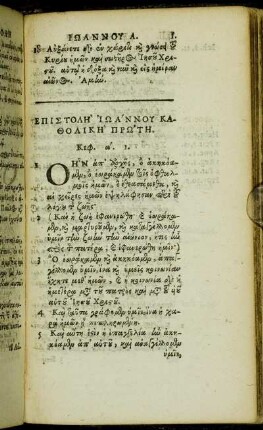 ΙΩΑΝΝΟΥ Α. 1.
18 Αὐξάνετε δὲ ἐν χάριτι καὶ γνώσει τοῦ
Κυρίου ἡμῶν καὶ σωτῆρος Ἰησοῦ Χρι-
στοῦ. αὐτῷ ἡ δόξα καὶ νῦν καὶ εἰς ἡμέραν
αἰῶνος. Ἀμήν.
ΕΠΙΣΤΟΛΗ ΙΩΑΝΝΟΥ ΚΑ-
ΘΟΛΙΚΗ ΠΡΩΤΗ.
Κεφ. α. 1.
Ο ΗΝ ἀπ' ἀρχῆς, ὃ ἀκηκόα-
μεν, ὃ ἑωράκαμεν τοῖς ὀφθαλ-
μοῖς ἡμῶν, ὃ ἐθεασάμεθα, καὶ
αἱ χεῖρες ἡμῶν ἐψηλάφησαν περὶ τοῦ
λόγου τῆς ζωῆς·
2 (Καὶ ἡ ζωὴ ἐφανερώθη, καὶ ἑωράκα-
μεν, καὶ μαρτυροῦμεν, καὶ ἀπαγγέλλομεν
ὑμῖν τὴν ζωὴν τὴν αἰώνιον, ἥτις ἦν
πρὸς τὸν πατέρα, καὶ ἐφανερώθη ἡμῖν·)
3 Ὃ ἑωράκαμεν καὶ ἀκηκόαμεν, ἀπαγ-
γέλλομεν ὑμῖν, ἵνα καὶ ὑμεῖς κοινωνίαν
ἔχητε μεθ' ἡμῶν, καὶ ἡ κοινωνία δὲ ἡ
ἡμετέρα μετὰ τοῦ πατρὸς καὶ μετὰ τοῦ υἱοῦ
αὐτοῦ Ἰησοῦ Χριστοῦ.
4 Καὶ ταῦτα γράφομεν ὑμῖν, ἵνα ἡ χα-
ρὰ ἡμῶν ᾖ πεπληρωμένη.
5 Καὶ αὕτη ἐστὶν ἡ ἐπαγγελία ἣν ἀκη-
κόαμεν ἀπ' αὐτοῦ, καὶ ἀναγγέλλομεν
ὑμῖν,